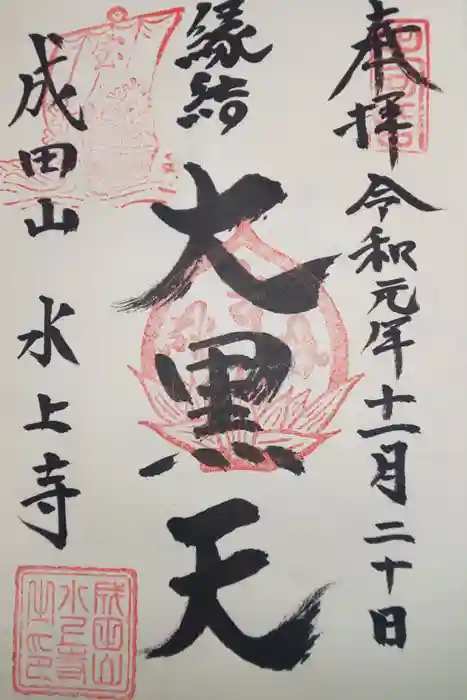 奉拝
令和元年十一月二十日
縁結
大黒天
成田山
水上寺
成田山
水上寺
之印